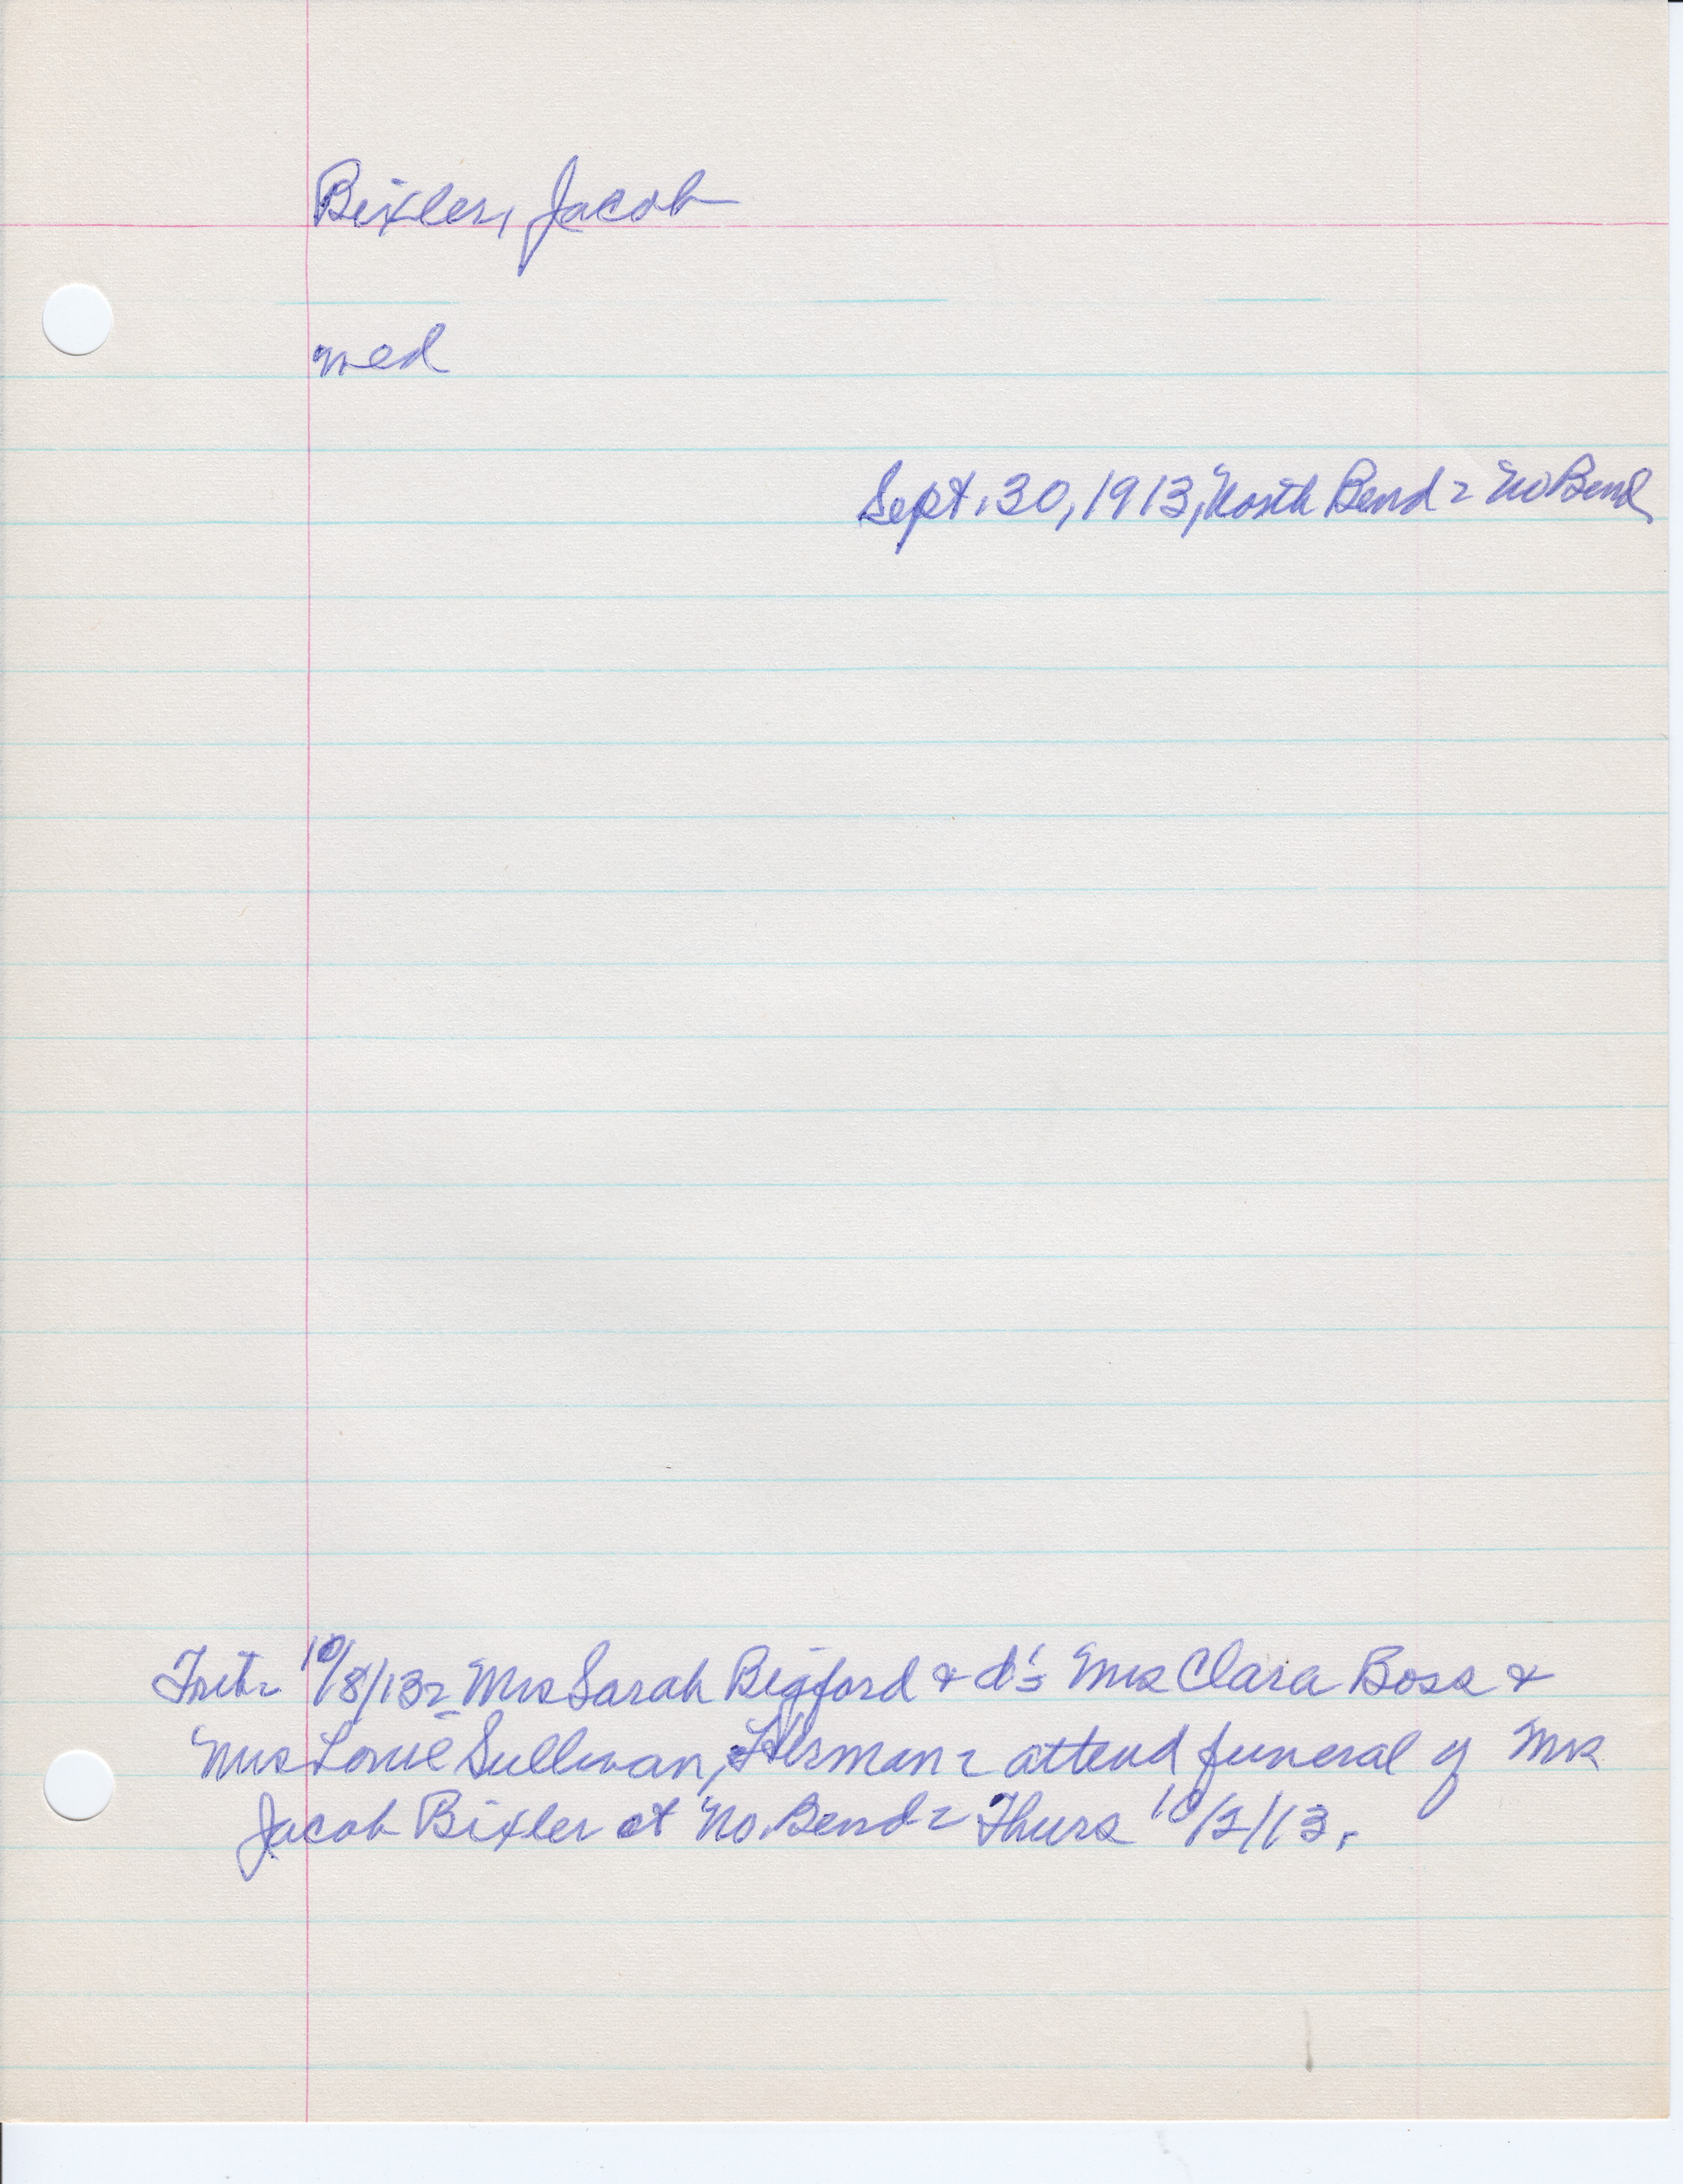 Bixler, Jacob
med
Sept. 30, 1913, North Bend = No Bend
10/8/13 = Mrs Sarah Bigford & d's Mrs Clara Boss &
Mrs Louie Sullivan, Herman = attend funeral of Mrs
Jacob Bixler at No. Bend = Thurs 10/2/13.